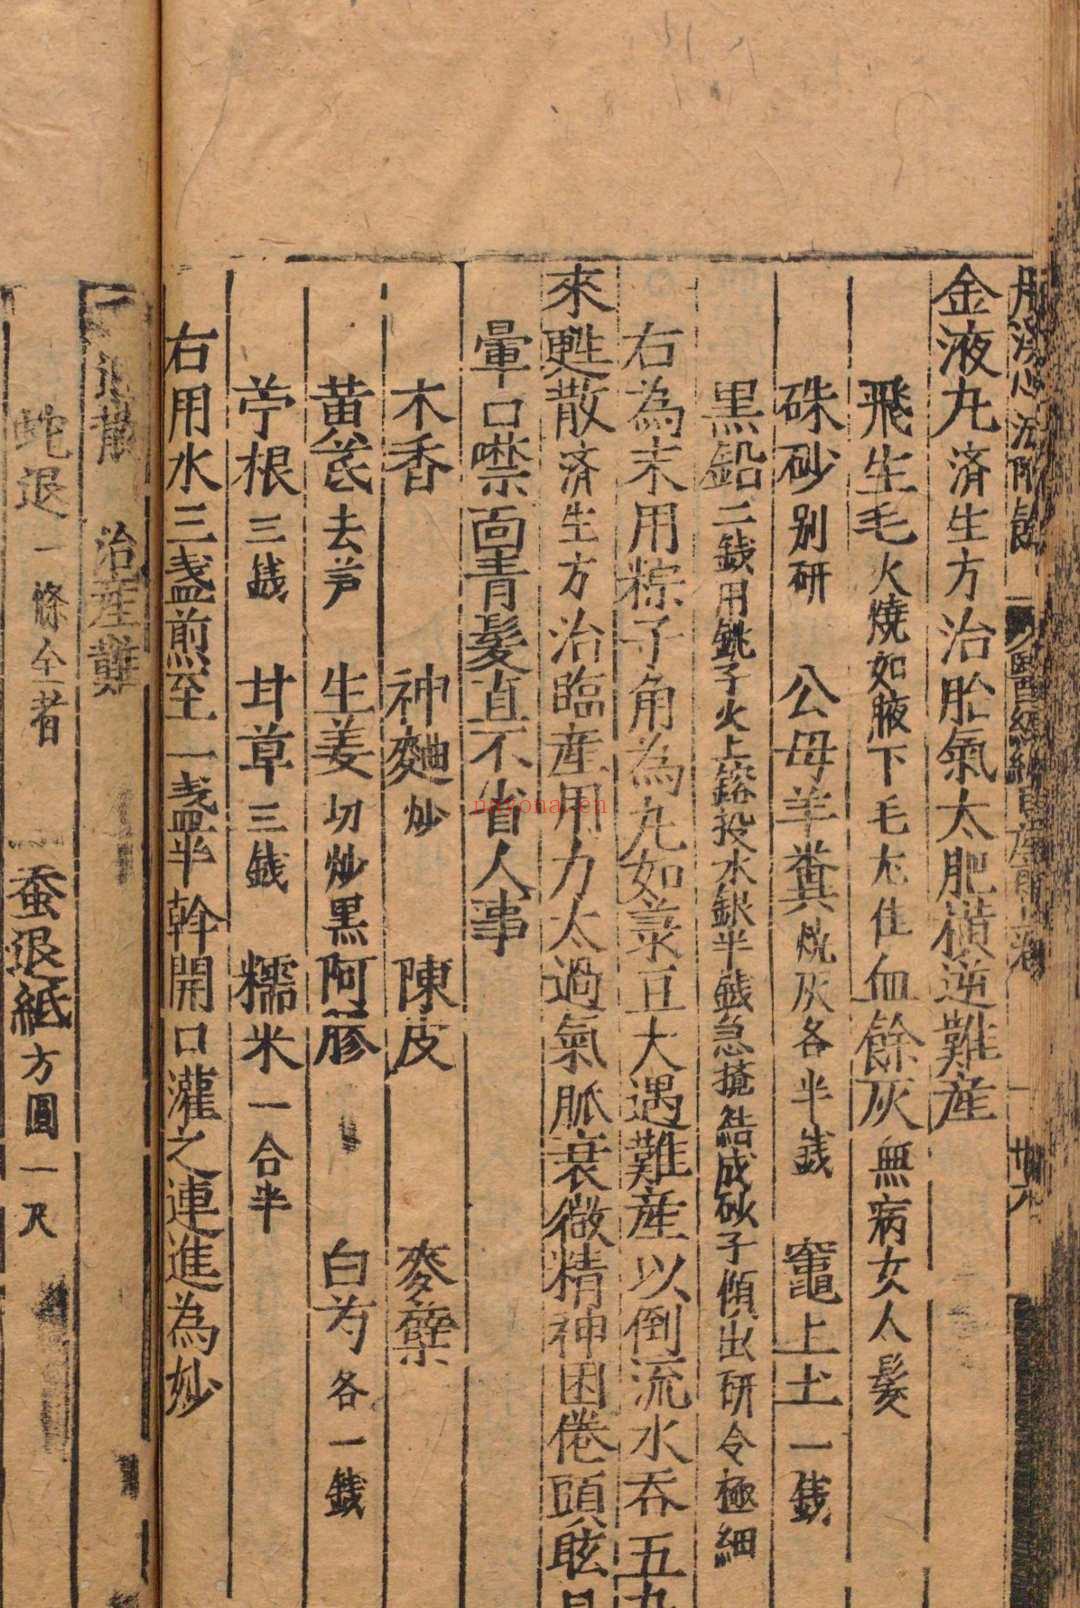 丹溪心法附餘
金液丸済生方治胎氣太肥橫逆難産
飛生毛火燒如腋下毛尤佳血餘灰無病女人髮
硃砂別研 公母羊糞燒灰各半銭 竈上土一銭
黒鉛二銭用銚子火上鎔投水銀半銭急攪結成砂子傾出研令極細
右為末用粽子角為丸如菉豆大遇難産以倒流水吞五丸
來甦散済生方治臨産用力太過氣脈衰微精神困倦頭眩目
暈口噤面青髮直不省人事
木香 神麯炒 陳皮 麥糵
黄芪去芦 生姜切炒黒阿膠 白芍各一銭
苧根三銭 甘草三銭 糯米一合半
右用水三盞煎至一盞半幹開口灌之連進為妙
二退散 治産難
蛇退一條全者 蚕退紙方圓一尺
nayona.cn